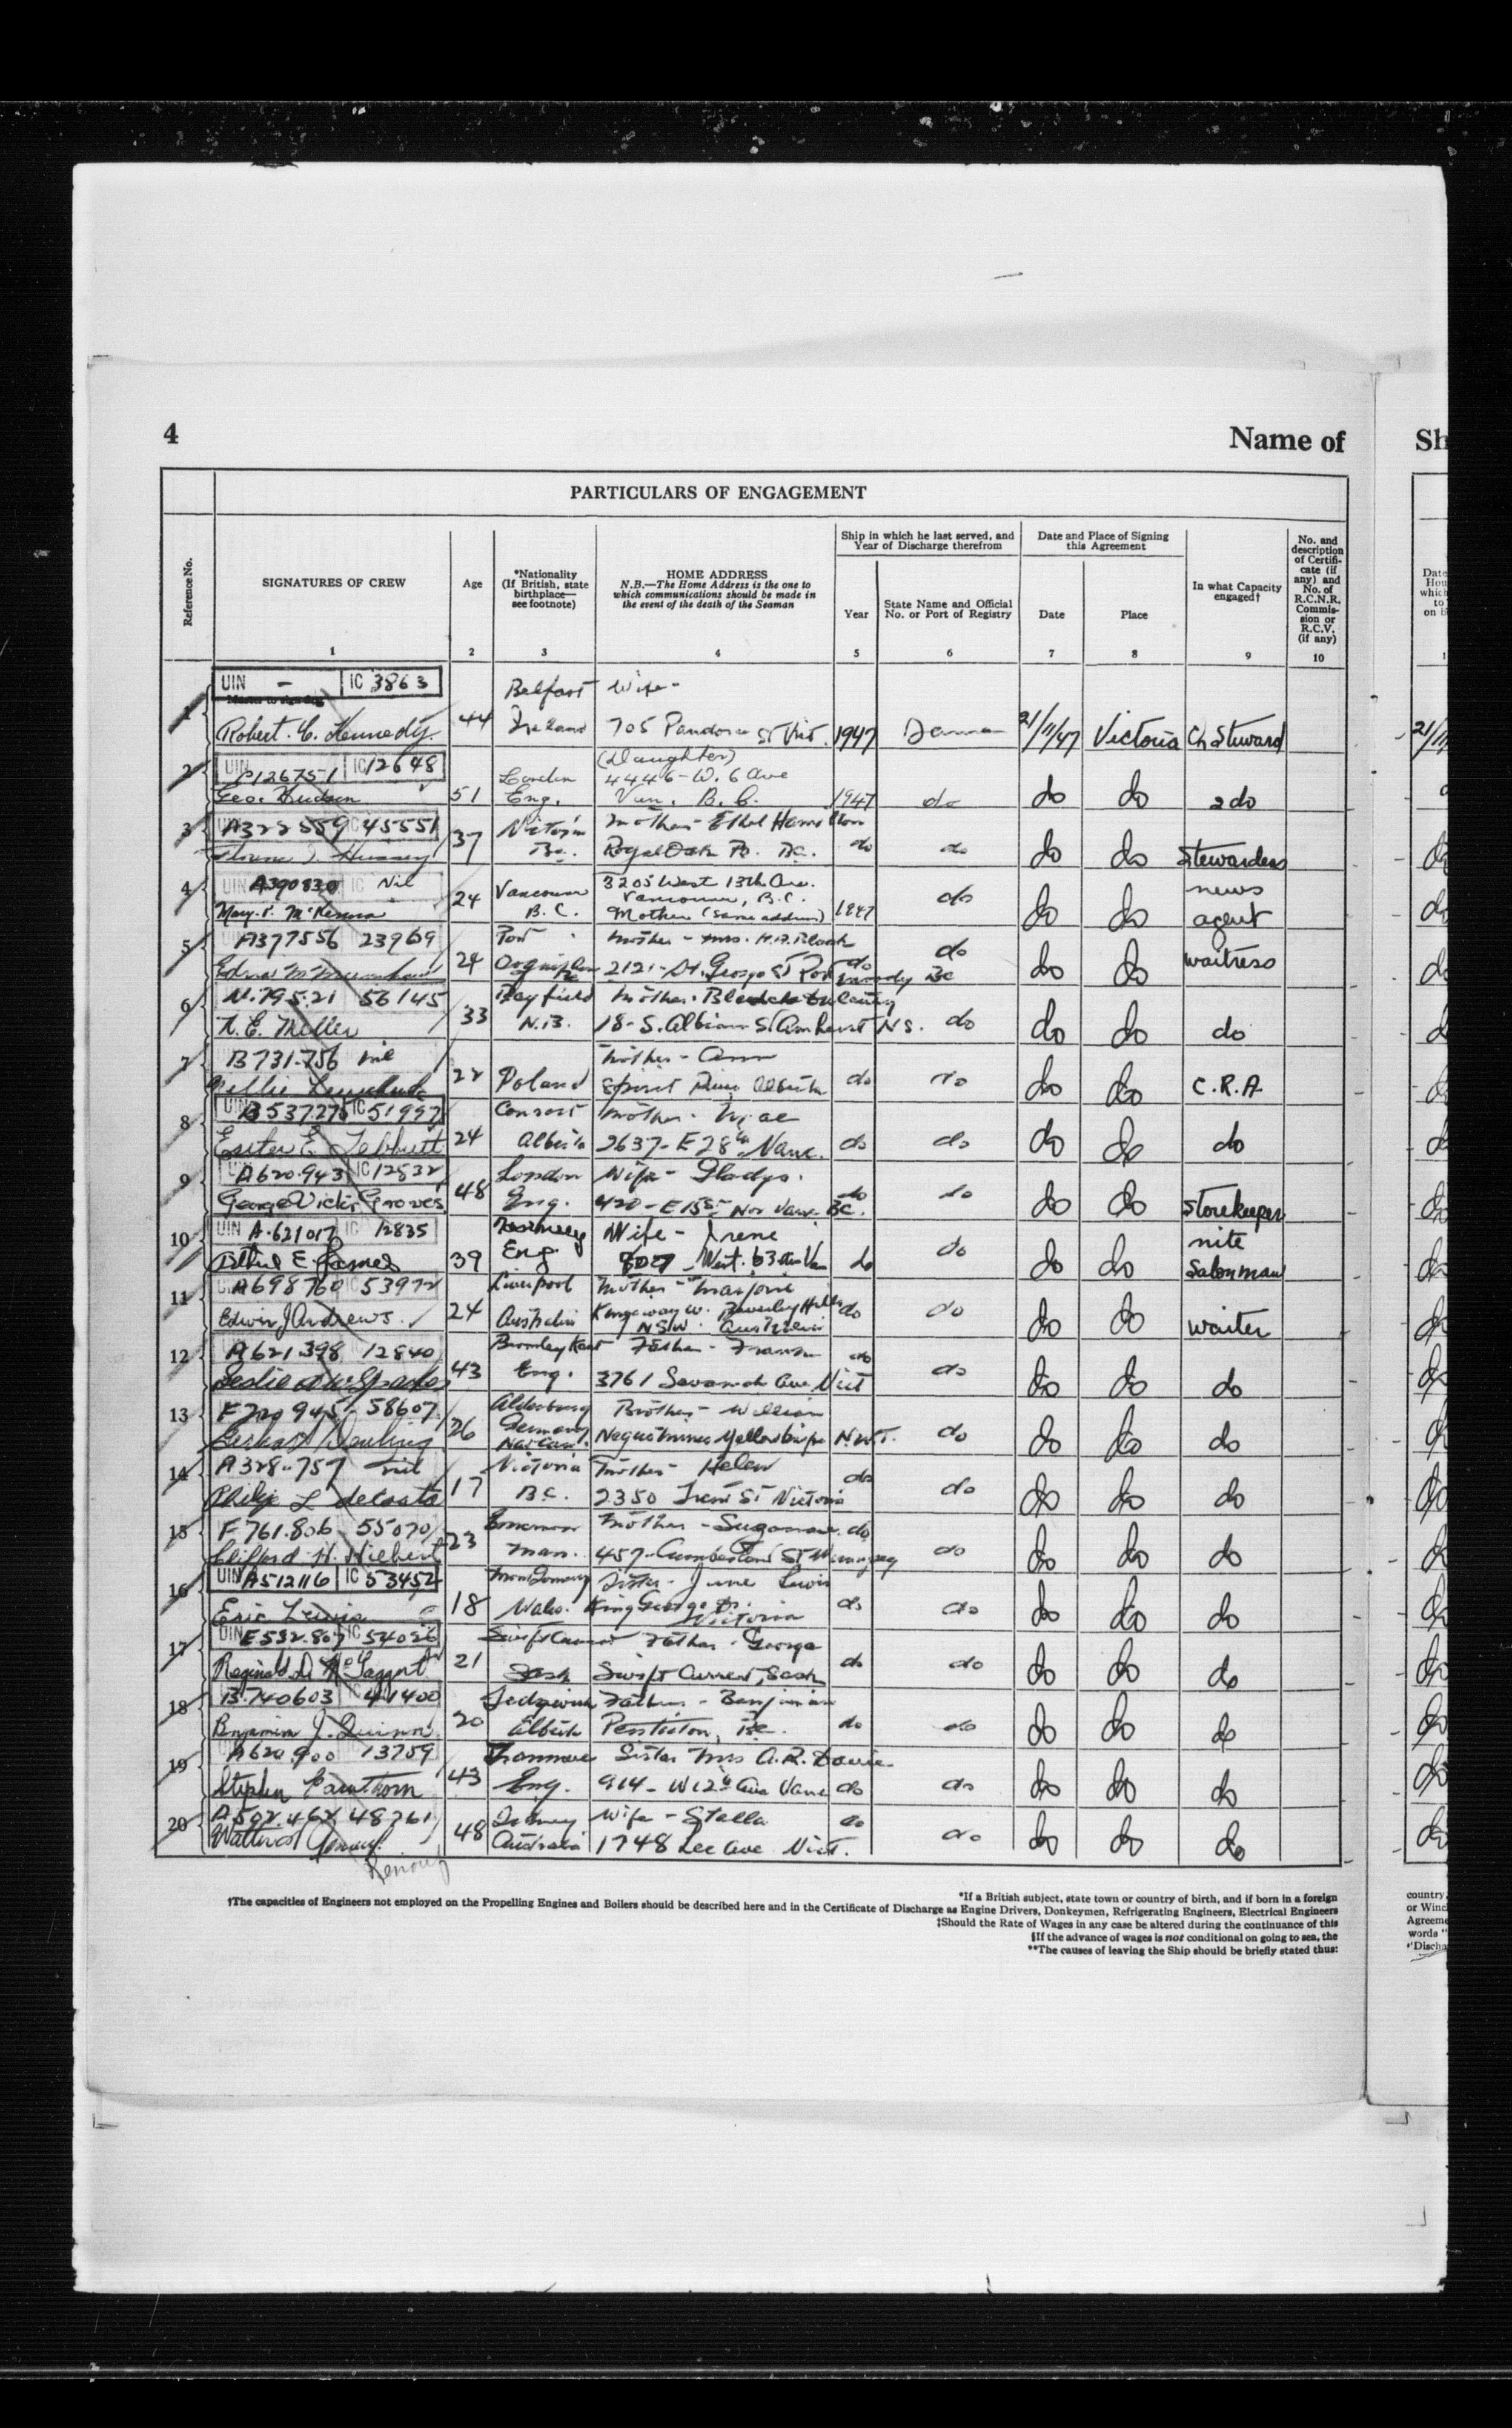 4
Name of
Sh
PARTICULARS OF ENGAGEMENT
Reference No.
SIGNATURES OF CREW
Age
*Nationality
(If British, state
birthplace—
see footnote)
HOME ADDRESS
N.B.—The Home Address is the one to
which communications should be made in
the event of the death of the Seaman
Ship in which he last served, and
Year of Discharge therefrom
Year
State Name and Official
No. or Port of Registry
Date and Place of Signing
this Agreement
Date
Place
In what Capacity
engaged†
No. and
description
of Certifi-
cate (if
any) and
No. of
R.C.N.R.
Commis-
sion or
R.C.V.
(if any)
1 2 3 4 5 6 7 8 9 10
UIN - IC 3863 Belfast Wife-
1 Robert. C. Kennedy 44 Ireland 705 Pandora St Vict. 1947 Same 21/11/47 Victoria Ch Steward
(Daughter)
2 UIN P126751 IC 12648 London 4446-W. 6 Ave
Geo. Hudson 51 Eng. Van. B.C. 1947 do do do 2 do
3 A322559 45551 37 Victoria Mother- Ethel Hamilton
Hussey B.C. Royal Oak B.C. do do do do Stewardess
4 UIN A390830 IC Nil 24 Vancouver 3205 West 13th Ave. do news
Vancouver, B.C.
Mary. P. McKenna B.C. Mother (same address) 1947 do do agent
5 A377556 23969 Port Mother - Mrs. H.A. Black do
Edna M 24 Coquitlam 2121- St. George St Port Moody BC do do do waitress
6 N.795.21 56145 Bayfield Mother.
N. E. Miller 33 N.B. 18-S. Albion St Amherst N.S. do do do do
7 B731.756 nil Mother - Ann
Nellie 22 Poland Spirit River Alberta do do do do C.R.A.
8 UIN B537275 IC 51997 Consort Mother.
Ester E. Tebbutt 24 Alberta 2637-E 28th Vanc. do do do do do
9 A620.943 IC 12532 London Wife- Gladys.
George Victor Groves 48 Eng. 420-E 15 St Nor Vanc. BC. do do do do Storekeeper
10 UIN A.621017 IC 12835 Wife - Irene nite
E. James 39 Eng. West. 63 Ave Van do do do do Saloonman
11 A698760 53972 Liverpool Mother - Marjorie
Edwin J Andrews. 24 Australia Kingsway W. Beverley Hills do do do do waiter
N.S.W. Australia
12 A621.398 12840 Bromley Kent Father - do
Leslie Spades 43 Eng. 3761 Savannah Ave Vict do do do do
13 F720945 - 58607 Brother - William
26 Germany Negus Mines Yellowknife N.W.T. do do do do
Nat Can.
14 A328-757 nil Victoria Mother - Helen
Philip L decosta 17 B.C. 2350 Trent St Victoria do do do do do
15 F761.806 55070 Emerson Mother - Suzanna. do
Clifford H. Hiebert 23 Man. 457-Cumberland St Winnipeg do do do do
16 UIN A512116 IC 53452 Sister - June Lewis
Eric Lewis 18 Wales. King George Dr. do do do do do
Victoria
17 UIN E532.807 IC 54026 Swift Current Father - George
Reginald D. McTaggart 21 Sask Swift Current, Sask do do do do do
18 B.740603 41400 Sedgewick Father - Benjamin
Benjamin J. Quinn 20 Alberta Penticton, B.C. do do do do do
19 A620.900 13759 Tranmere Sister Mrs A.R. Davie
Stephen Fawthorn 43 Eng. 914-W 12th Ave Vanc do do do do do
20 A502.462 48761 Sidney Wife - Stella do
48 Australia 1748 Lee Ave Vict. do do do do
Renouf
*If a British subject, state town or country of birth, and if born in a foreign
†The capacities of Engineers not employed on the Propelling Engines and Boilers should be described here and in the Certificate of Discharge as Engine Drivers, Donkeymen, Refrigerating Engineers, Electrical Engineers
‡Should the Rate of Wages in any case be altered during the continuance of this
§If the advance of wages is not conditional on going to sea, the
**The causes of leaving the Ship should be briefly stated thus: